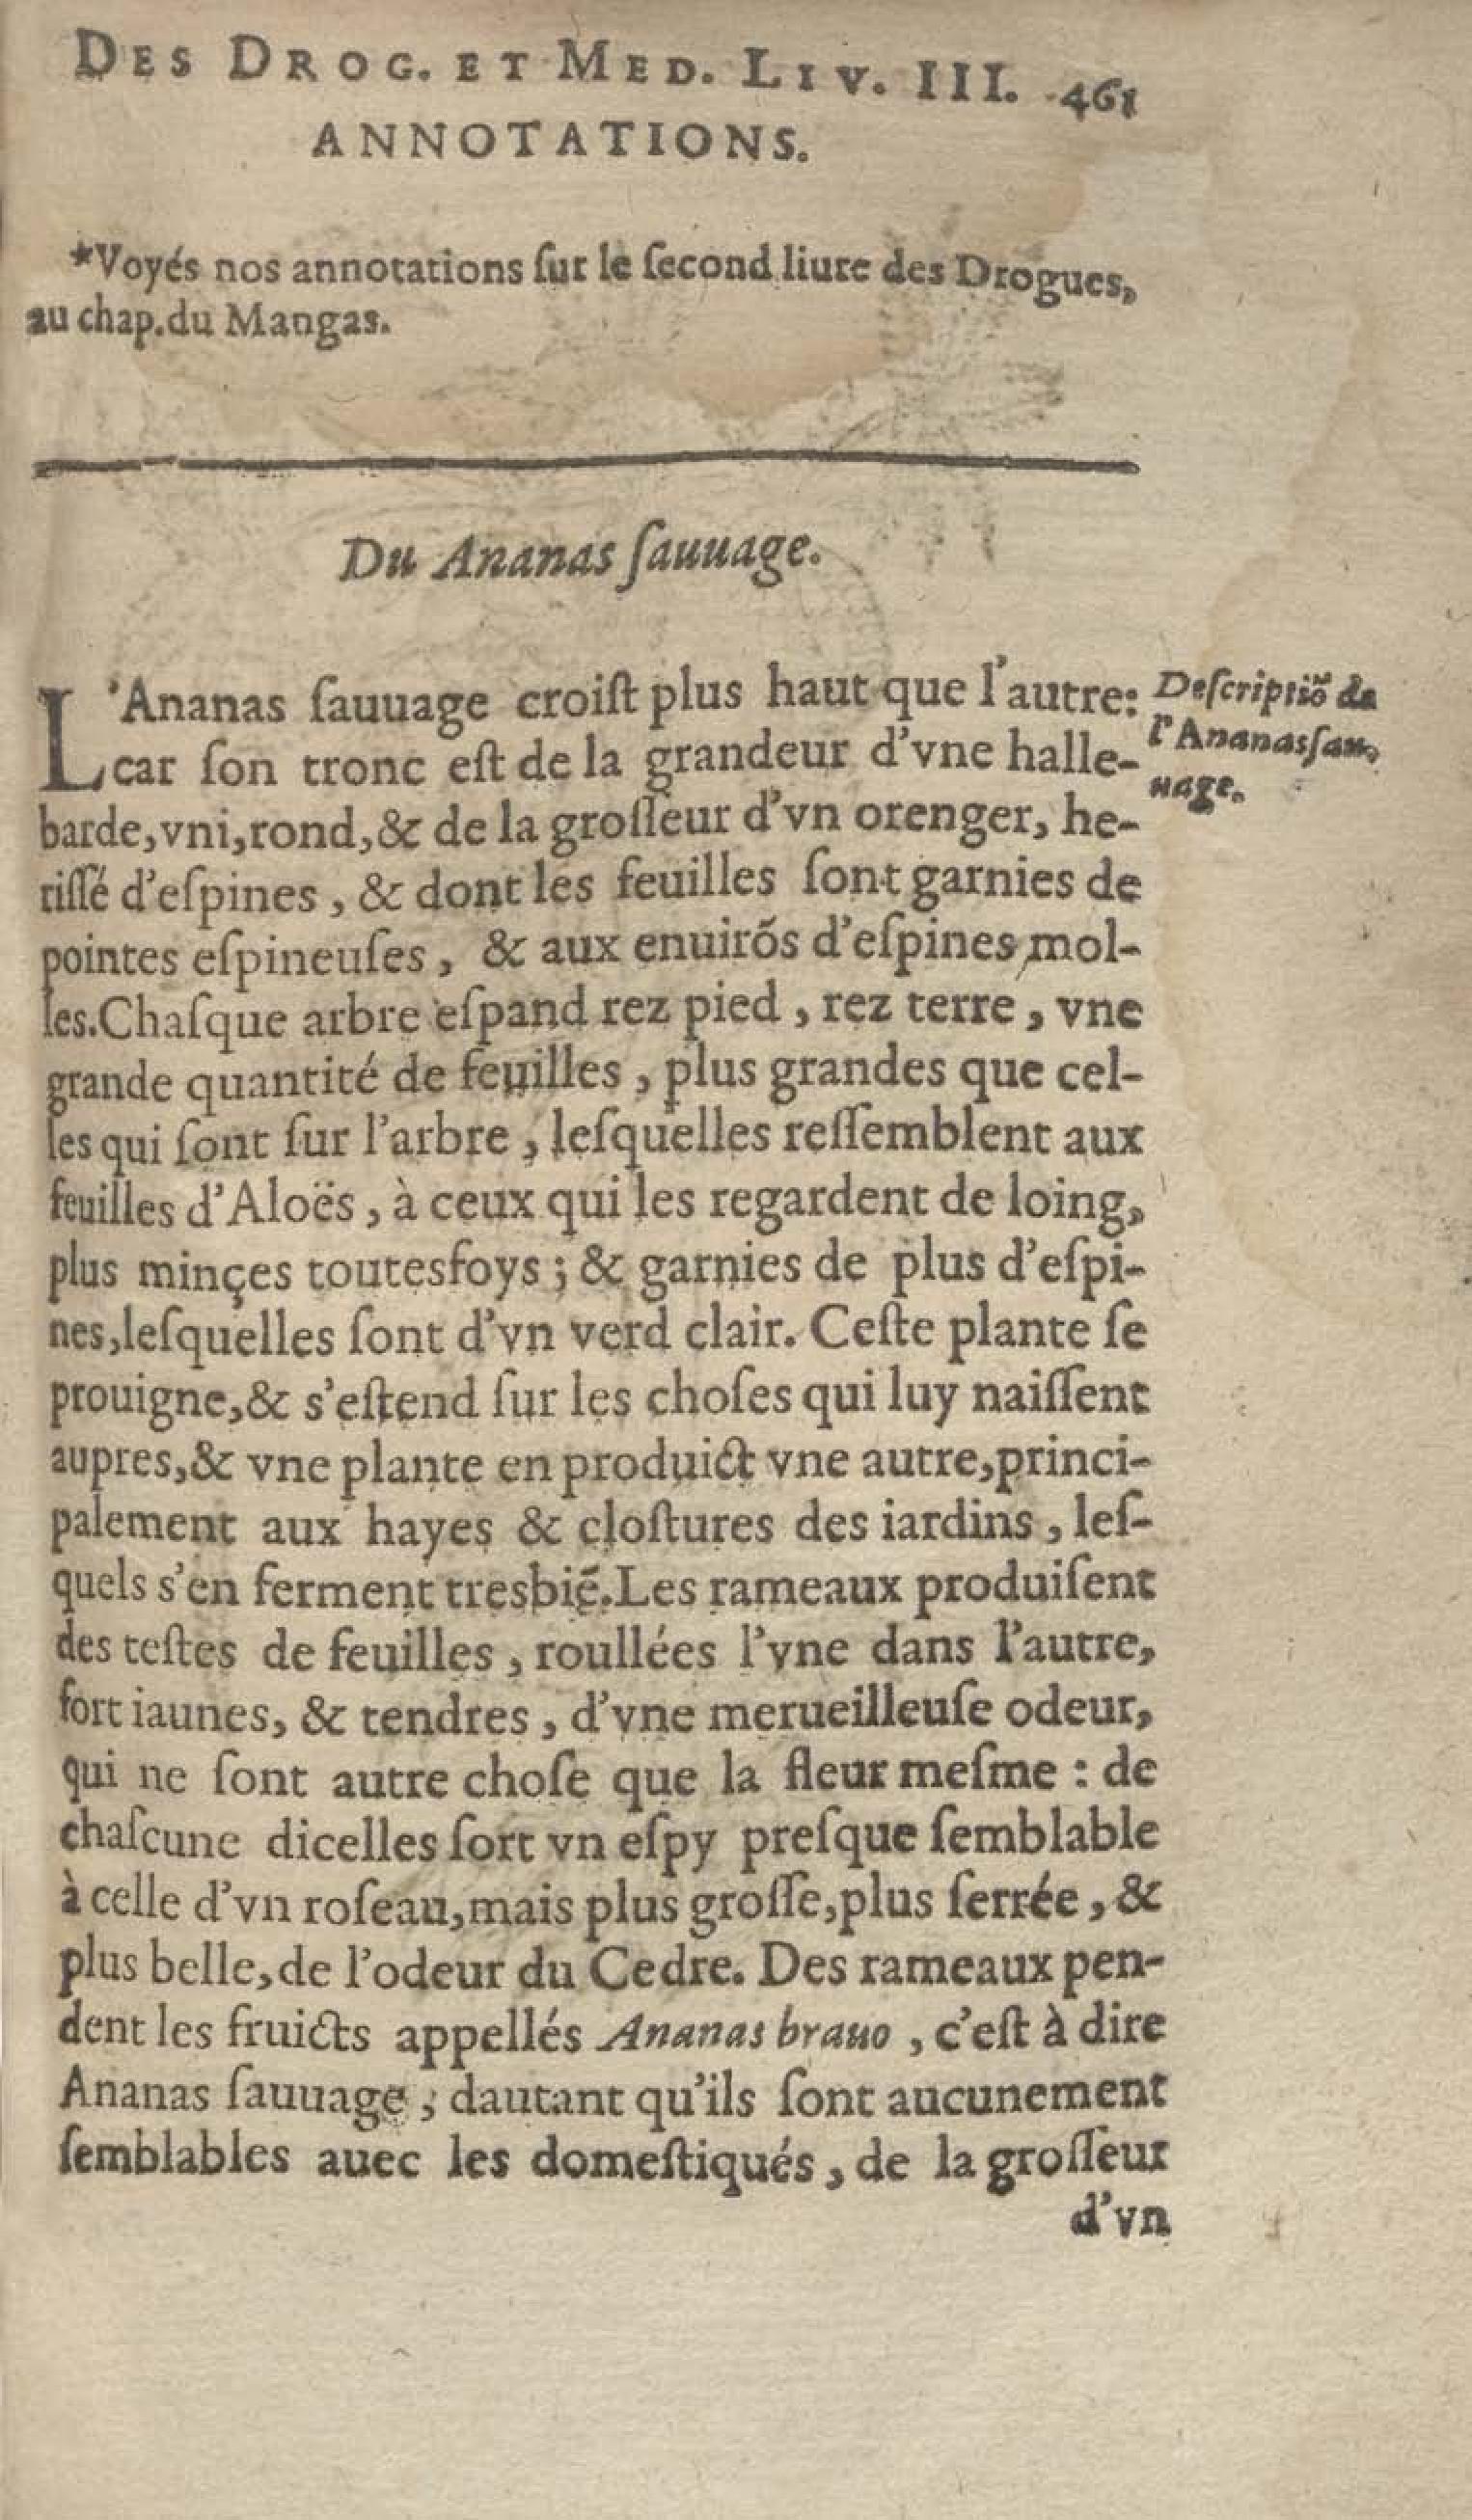 DES DROG. ET MED. LIV. III. 461
ANNOTATIONS.
*Voyés nos annotations ſur le ſecond liure des Drogues,
au chap.du Mangas.
Du Ananas ſauuage.
L'Ananas ſauuage croiſt plus haut que l'autre:
car ſon tronc eſt de la grandeur d'vne halle-
barde,vni,rond,& de la groſſeur d'vn orenger, he-
riſſé d'eſpines, & dont les feuilles ſont garnies de
pointes eſpineuſes, & aux enuirõs d'eſpines mol-
les.Chaſque arbre eſpand rez pied, rez terre, vne
grande quantité de feuilles, plus grandes que cel-
les qui ſont ſur l'arbre, leſquelles reſſemblent aux
feuilles d'Aloës, à ceux qui les regardent de loing,
plus minçes toutesfoys; & garnies de plus d'eſpi-
nes,leſquelles ſont d'vn verd clair. Ceſte plante ſe
prouigne,& s'eſtend ſur les choſes qui luy naiſſent
aupres,& vne plante en produict vne autre,princi-
palement aux hayes & cloſtures des iardins, leſ-
quels s'en ferment tresbiẽ.Les rameaux produiſent
des teſtes de feuilles, roullées l'vne dans l'autre,
fort iaunes, & tendres, d'vne merueilleuſe odeur,
qui ne ſont autre choſe que la fleur meſme : de
chaſcune dicelles ſort vn eſpy preſque ſemblable
à celle d'vn roſeau,mais plus groſſe,plus ſerrée, &
plus belle,de l'odeur du Cedre. Des rameaux pen-
dent les fruicts appellés Ananas brauo, c'eſt à dire
Ananas ſauuage; dautant qu'ils ſont aucunement
ſemblables auec les domeſtiqués, de la groſſeur
d'vn
Deſcriptiõ de
l'Ananas ſau-
uage.